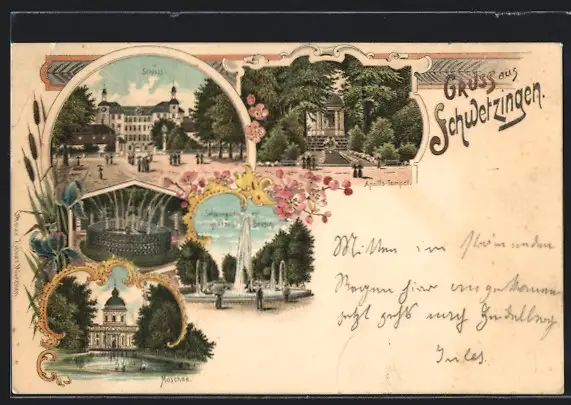 Gruss aus
Schwetzingen.
Schloss
Apollo-Tempel.
Moschee.
Mitten im strömenden
Regen hier angekommen
jetzt geht's nach Heidelberg
Jules.